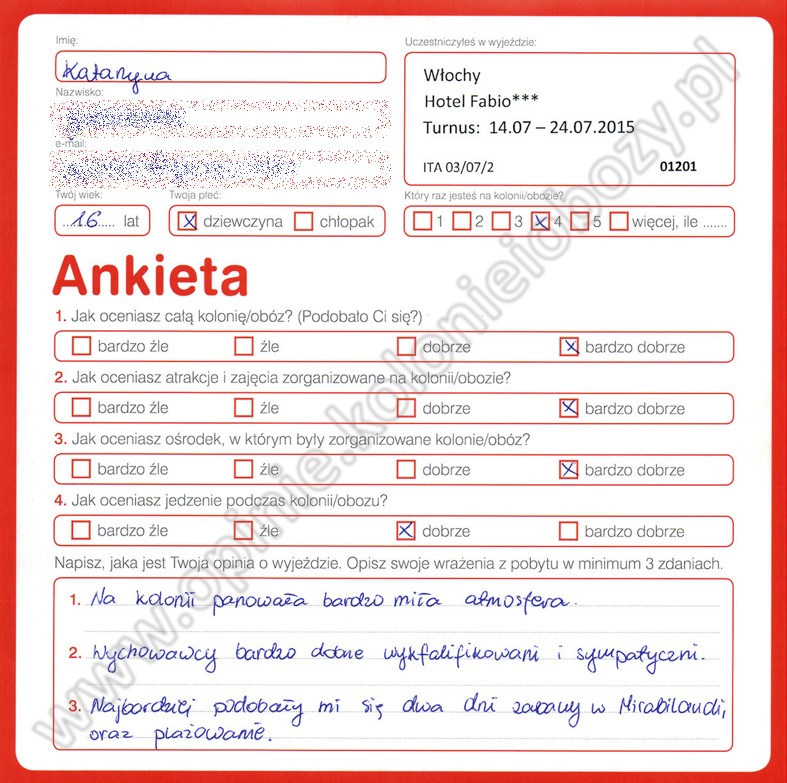 Imię:
Uczestniczyłeś w wyjeździe:
Katarzyna
Włochy
Hotel Fabio***
Turnus: 14.07 – 24.07.2015
ITA 03/07/2
01201
Nazwisko:
e-mail:
Twój wiek:
Twoja płeć:
Który raz jesteś na kolonii/obozie?
...16.... lat
dziewczyna
chłopak
1 2 3 4 5 więcej, ile .......
Ankieta
1. Jak oceniasz całą kolonię/obóz? (Podobało Ci się?)
bardzo źle źle dobrze bardzo dobrze
2. Jak oceniasz atrakcje i zajęcia zorganizowane na kolonii/obozie?
bardzo źle źle dobrze bardzo dobrze
3. Jak oceniasz ośrodek, w którym były zorganizowane kolonie/obóz?
bardzo źle źle dobrze bardzo dobrze
4. Jak oceniasz jedzenie podczas kolonii/obozu?
bardzo źle źle dobrze bardzo dobrze
Napisz, jaka jest Twoja opinia o wyjeździe. Opisz swoje wrażenia z pobytu w minimum 3 zdaniach.
1. Na kolonii panowała bardzo miła atmosfera.
2. Wychowawcy bardzo dobrze wykfalifikowani i sympatyczni.
3. Najbardziej podobały mi się dwa dni zabawy w Mirabilandi,
oraz plażowanie.
www.opinie.kolonieiobozy.pl